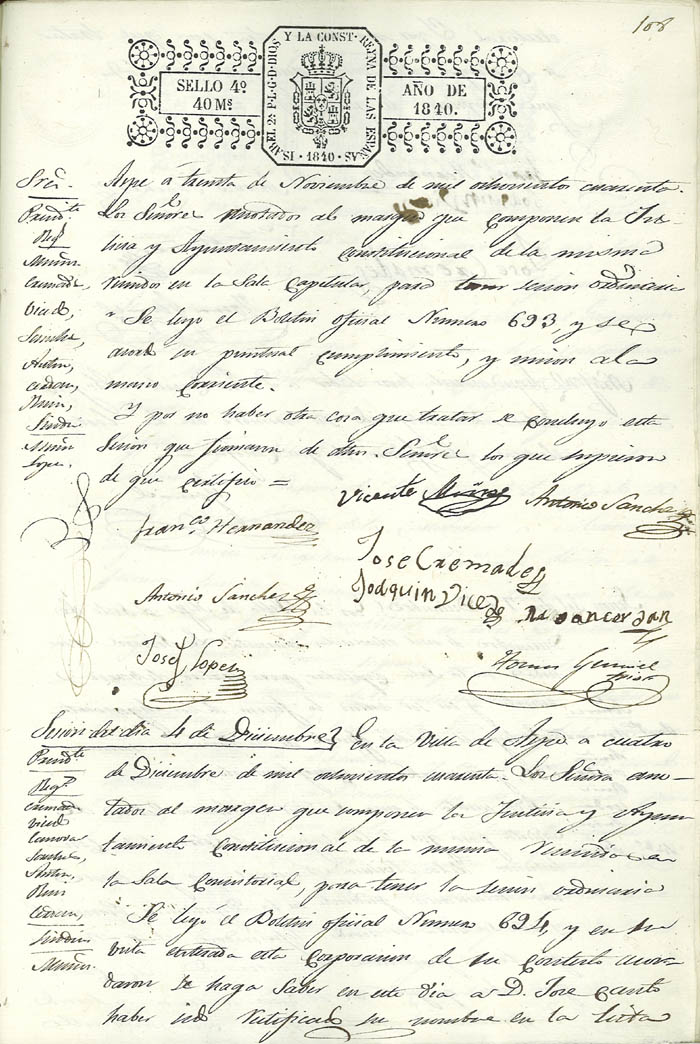 108
SELLO 4º
40 Ms
YSABEL 2ª P.L.G.D. DIOS Y LA CONST. REYNA DE LAS ESPAÑAS
1840
AÑO DE
1840.
Aspe á treinta de Noviembre de mil ochocientos cuarenta.
Los Señores anotados al margen que componen la Jus-
ticia y Ayuntamiento Constitucional de la misma
reunidos en la Sala Capitular, para tener sesion ordinaria
Se leyo el Boletin oficial Numero 693, y se
acordó su puntual cumplimiento, y union al
mano corriente.
Y por no haber otra cosa que tratar se concluyo esta
Sesion que firmaron de dhos. Señores los que supieron
de que certifico =
Sres.
Presidte
Regs
Muñoz
Cremades,
Vicedo,
Sanchez,
Cerdan,
Sindico
Muñoz
Lopez.
Vicente Muñoz
Antonio Sanchez
Franco. Hernandez
Jose Cremades
Joaquin Vicedo
Antonio Sanchez
Jose Lopez
Sesion del dia 4 de Diciembre
En la Villa de Aspe a cuatro
de Diciembre de mil ochocientos cuarenta. Los Señores ano-
tados al margen que componen la Justicia y Ayun
tamiento Constitucional de la misma reunidos en
la Sala Consistorial, para tener la sesion ordinaria
Se leyó el Boletin oficial Numero 694, y en su
vista enterada esta corporacion de su contesto acor-
daron se haga saber en este dia a D. Jose Canto
haber sido rectificado su nombre en la lista
Presidte
Regs
Cremades
Vicedo
Canovas
Sanchez,
Cerdan,
Sindico
Muñoz.